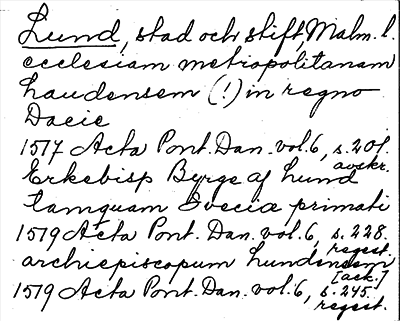 Lund, stad och stift, Malm. l.
ecclesiam metropolitanam
haudensem (!) in regno
Dacie
1517 Acta Pont. Dan. vol. 6, s. 201.
avskr.
Erkebisp Byrge af Lund
tamquam Svecia primati
1519 Acta Pont. Dan. vol. 6, s. 228.
regest.
archiepiscopum Lundensem
[ack.]
1519 Acta Pont. Dan. vol. 6, s. 245.
regest.